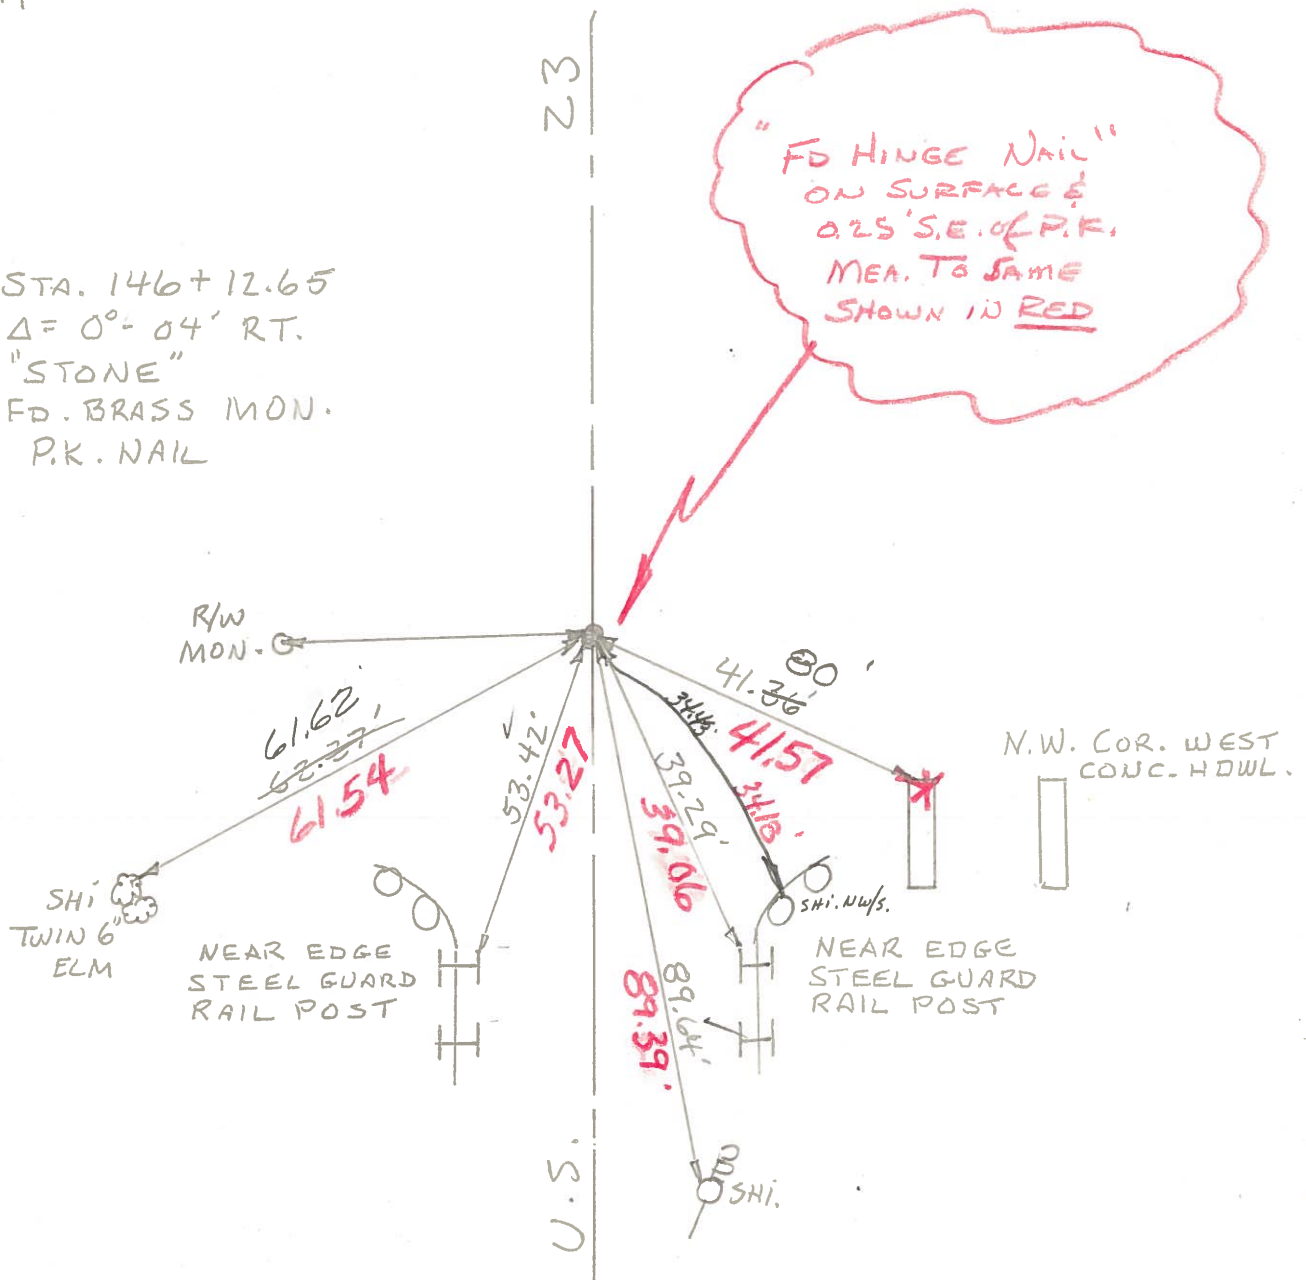 23
"FD HINGE NAIL"
ON SURFACE &
0.25' S.E. of P.K.
MEA. TO SAME
SHOWN IN RED
STA. 146+12.65
Δ= 0°- 04' RT.
"STONE"
FD. BRASS MON.
P.K. NAIL
R/W
MON.
61.62
62.37'
61.54
53.42'
53.27
80'
41.36'
41.57
34.43'
34.18'
39.29'
39.06
89.64'
89.39'
N.W. COR. WEST
CONC. HDWL.
SHI
TWIN 6"
ELM
NEAR EDGE
STEEL GUARD
RAIL POST
SHI. NW/S.
NEAR EDGE
STEEL GUARD
RAIL POST
U.S.
SHI.